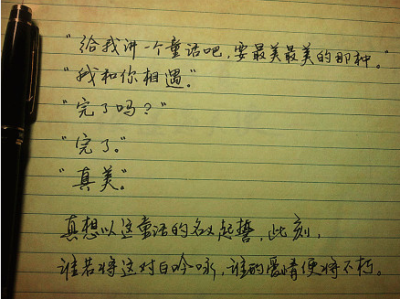 “给我讲一个童话吧，要最美最美的那种。”
“我和你相遇。”
“完了吗？”
“完了。”
“真美。”
真想以这童话的名义起誓，此刻，
谁若将这对白吟咏，谁的爱情便将不朽。